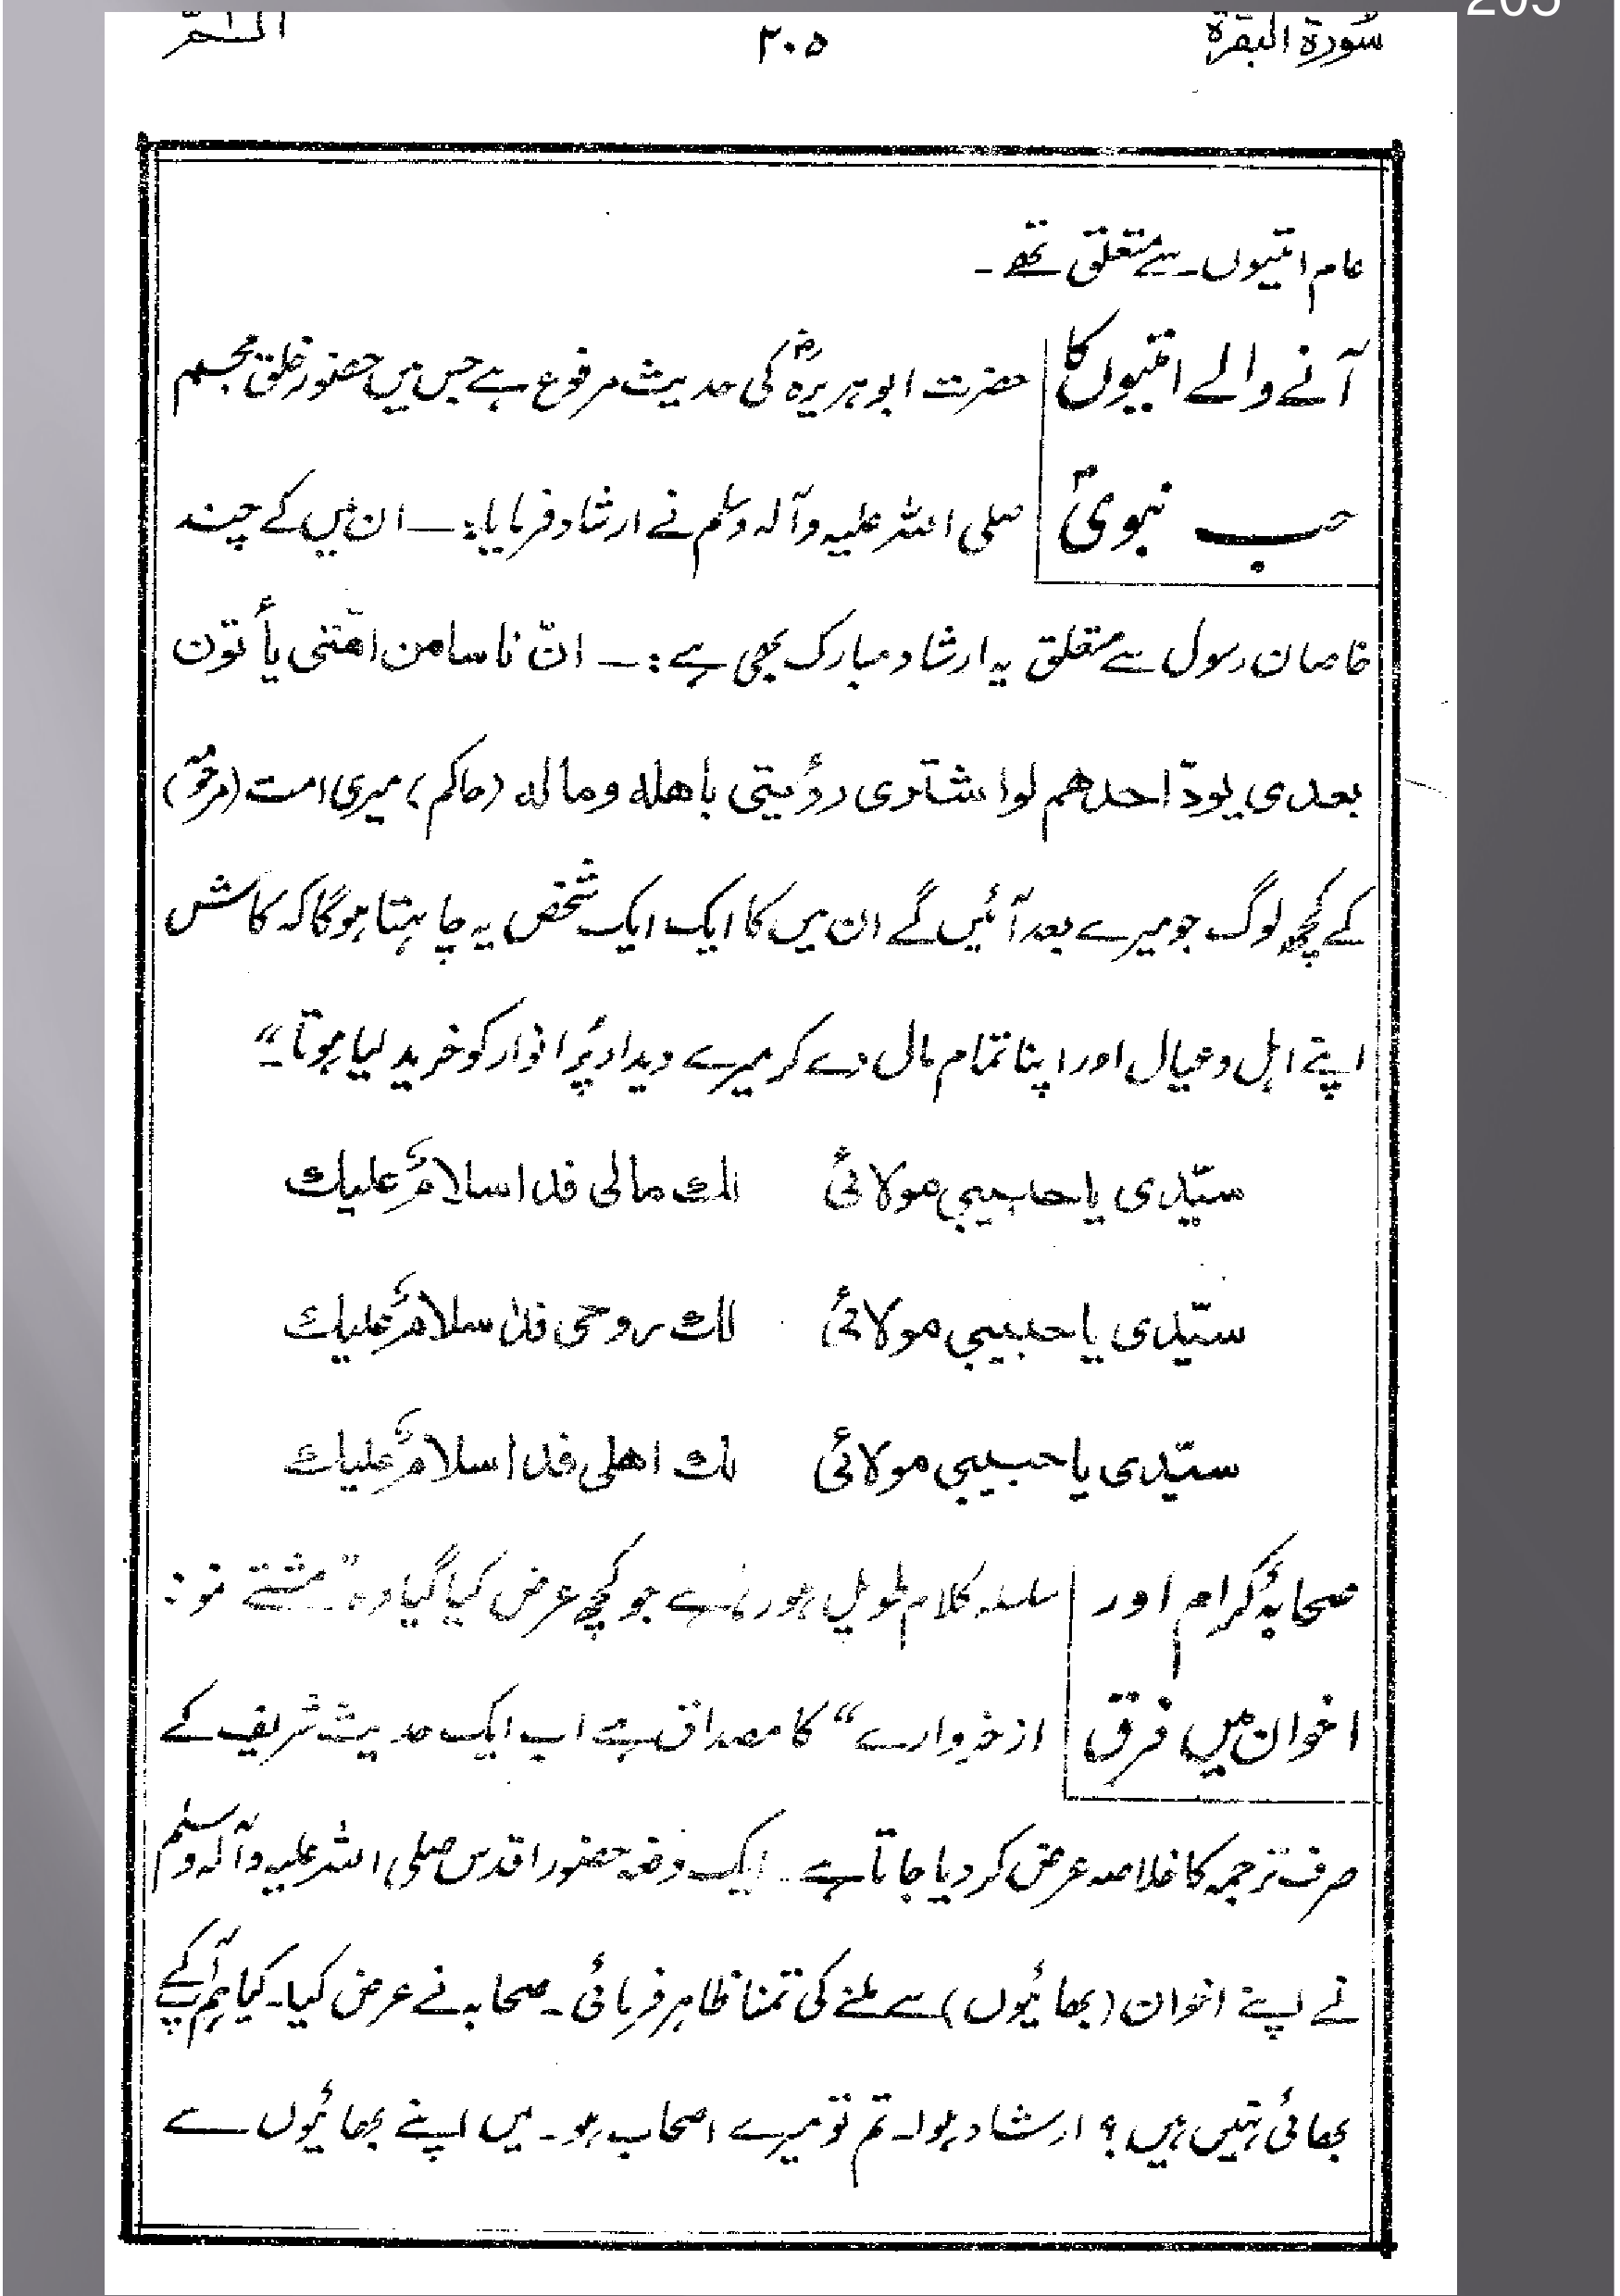 205
سُورة البقرة ۲۰۵ الٓـمّٓ
عام امتیوں سے متعلق تھے ۔
آنے والے امتیوں کا حضرت ابوہریرہؓ کی حدیث مرفوع ہے جس میں حضور خلق مجسم
حب نبویؐ صلی اللہ علیہ وآلہ وسلم نے ارشاد فرمایا:۔ ان میں کے چند
خاصان رسول سے متعلق یہ ارشاد مبارک بھی ہے :۔ انّ ناسا من امّتی یأتون
بعدی یودّ احدهم لو اشتری رؤیتی باهله وماله (حاکم) میری امت (مرحومہ)
کے کچھ لوگ جو میرے بعد آئیں گے ان میں کا ایک ایک شخص یہ چاہتا ہوگا کہ کاش
اپنے اہل و عیال اور اپنا تمام مال دے کر میرے دیدار پُر انوار کو خرید لیا ہوتا۔“
سیّدی یا حبیبی مولائی لك مالی فدا سلامٌ علیك
سیّدی یا حبیبی مولائی لك روحی فدا سلامٌ علیك
سیّدی یا حبیبی مولائی لك اهلی فدا سلامٌ علیك
صحابہؓ کرام اور سلسلہ کلام طویل ہو رہا ہے جو کچھ عرض کیا گیا وہ ”مشتے نمونہ
اخوان میں فرق از خروارے“ کا مصداق ہے اب ایک حدیث شریف کے
صرف ترجمہ کا خلاصہ عرض کر دیا جاتا ہے۔ ایک دفعہ حضور اقدس صلی اللہ علیہ وآلہ وسلم
نے اپنے اخوان (بھائیوں) سے ملنے کی تمنا ظاہر فرمائی ۔ صحابہ نے عرض کیا۔ کیا ہم آپ کے
بھائی نہیں ہیں ؟ ارشاد ہوا۔ تم تو میرے اصحاب ہو۔ میں اپنے بھائیوں سے